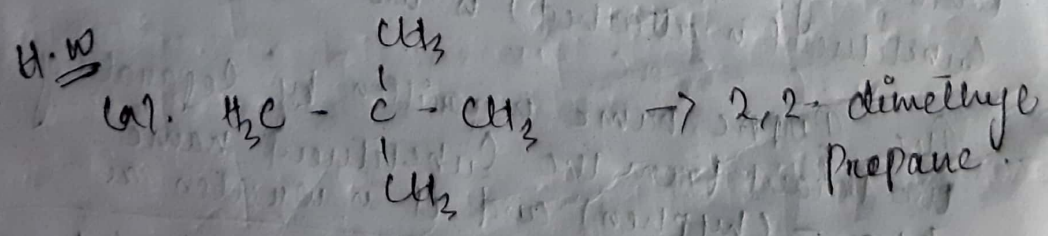 CH3
H.W
(a). H3C - C - CH3 → 2,2- dimethyl
Propane.
CH3